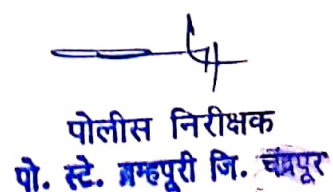 पोलीस निरीक्षक
पो. स्टे. ब्रम्हपूरी जि. चंद्रपूर